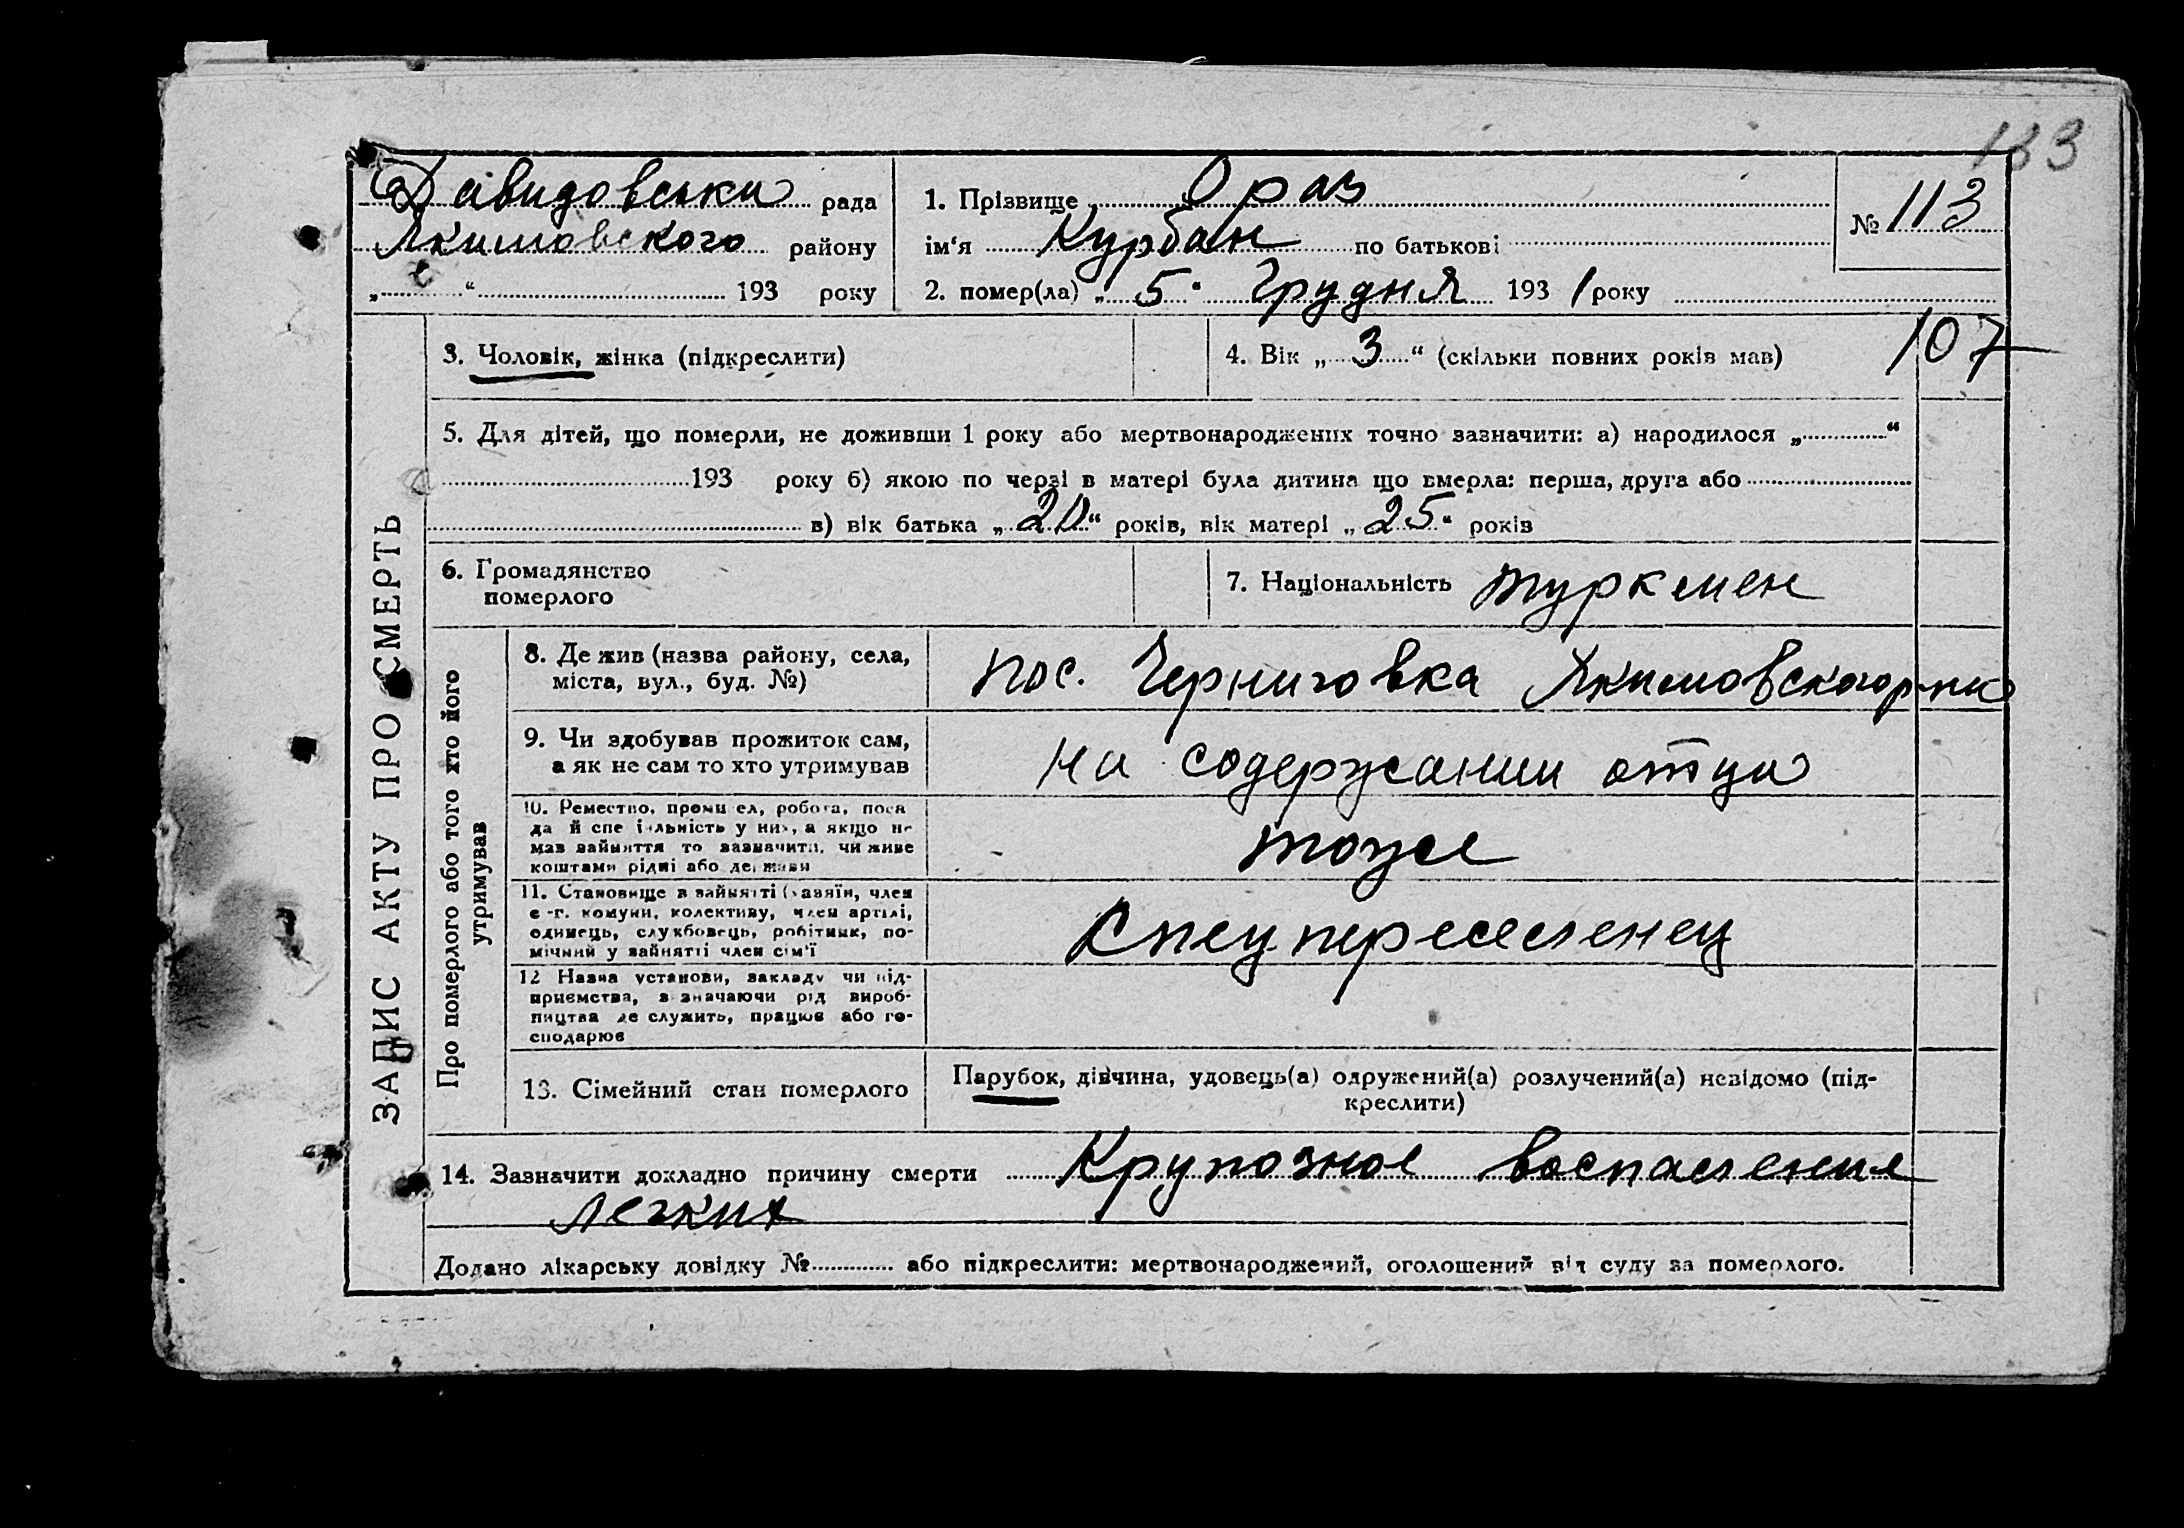 183
Давидовська рада
Якимовского району
„ “ 193 року
1. Прізвище Ораз
ім‘я Курбан по батькові
2. помер(ла) „ 5 “ Грудня 193 1 року
№ 113
3. Чоловік, жінка (підкреслити)
4. Вік „ 3 “ (скільки повних років мав)
107
5. Для дітей, що померли, не доживши 1 року або мертвонароджених точно зазначити: а) народилося „ “
193 року б) якою по черзі в матері була дитина що вмерла: перша, друга або
в) вік батька „ “ років, вік матері „ 25 “ років
6. Громадянство
померлого
7. Національність туркмен
ЗАПИС АКТУ ПРО СМЕРТЬ
Про померлого або того хто його
утримував
8. Де жив (назва району, села,
міста, вул., буд. №)
пос. Черниговка Якимовского
9. Чи здобував прожиток сам,
а як не сам то хто утримував
на содержании отца
10. Ремество, промисел, робота, поса
да й спеціяльність у них, а якщо не
мав зайняття то зазначити, чи живе
коштами рідні або держави
тоже
11. Становище в зайнятті (хазяїн, член
с-г. комуни, колективу, член артілі,
одинець, службовець, робітник, по-
мічний у зайнятті член сім‘ї
Спецпереселенец
12 Назва установи, закладу чи під-
приємства, зазначаючи рід вироб-
ництва де служить, працює або го-
сподарює
13. Сімейний стан померлого
Парубок, дівчина, удовець(а) одружений(а) розлучений(а) невідомо (під-
креслити)
14. Зазначити докладно причину смерти Крупозное воспаление
легких
Додано лікарську довідку № або підкреслити: мертвонароджений, оголошений від суду за померлого.